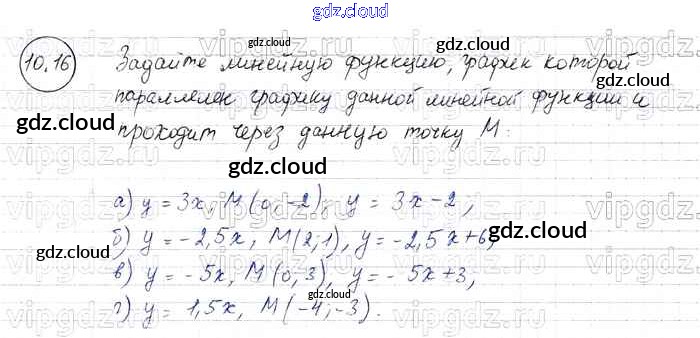 gdz.cloud
10.16 Задайте линейную функцию, график которой
параллелен графику данной линейной функции и
проходит через данную точку M:
а) y = 3x, M(0; -2), y = 3x - 2,
б) y = -2,5x, M(2; 1), y = -2,5x + 6,
в) y = -5x, M(0; 3), y = -5x + 3,
г) y = 1,5x, M(-4; -3).
gdz.cloud
gdz.cloud
gdz.cloud
gdz.cloud
gdz.cloud
gdz.cloud
gdz.cloud
gdz.cloud
gdz.cloud
vipgdz.ru